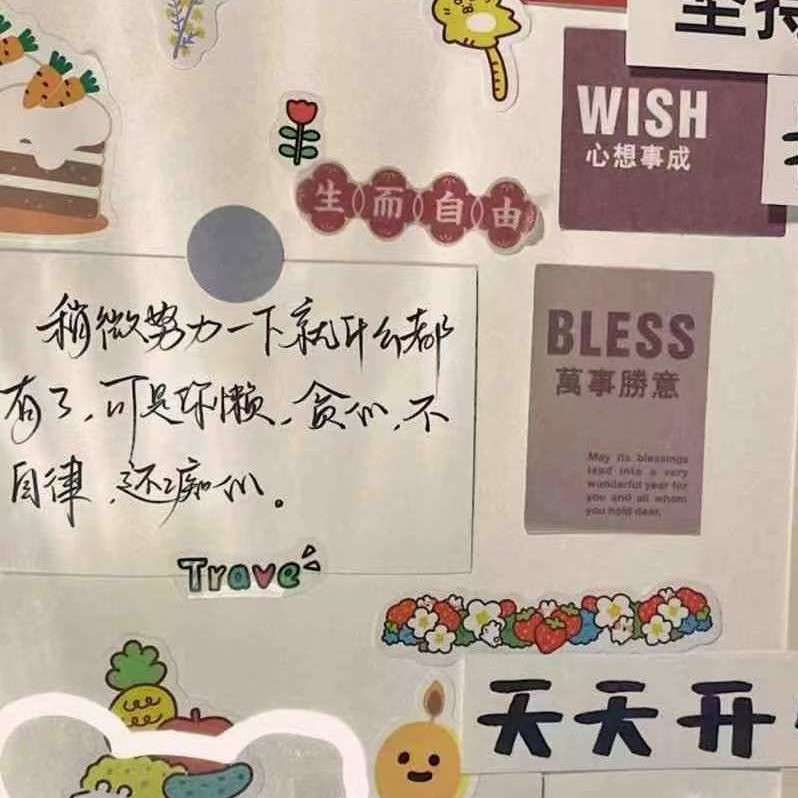 坚持
WISH
心想事成
生而自由
稍微努力一下就什么都
有了,可是你懒,贪小,不
自律,还痴心。
BLESS
萬事勝意
May its blessings
lead into a very
wonderful year for
you and all whom
you hold dear.
Trave
天天开